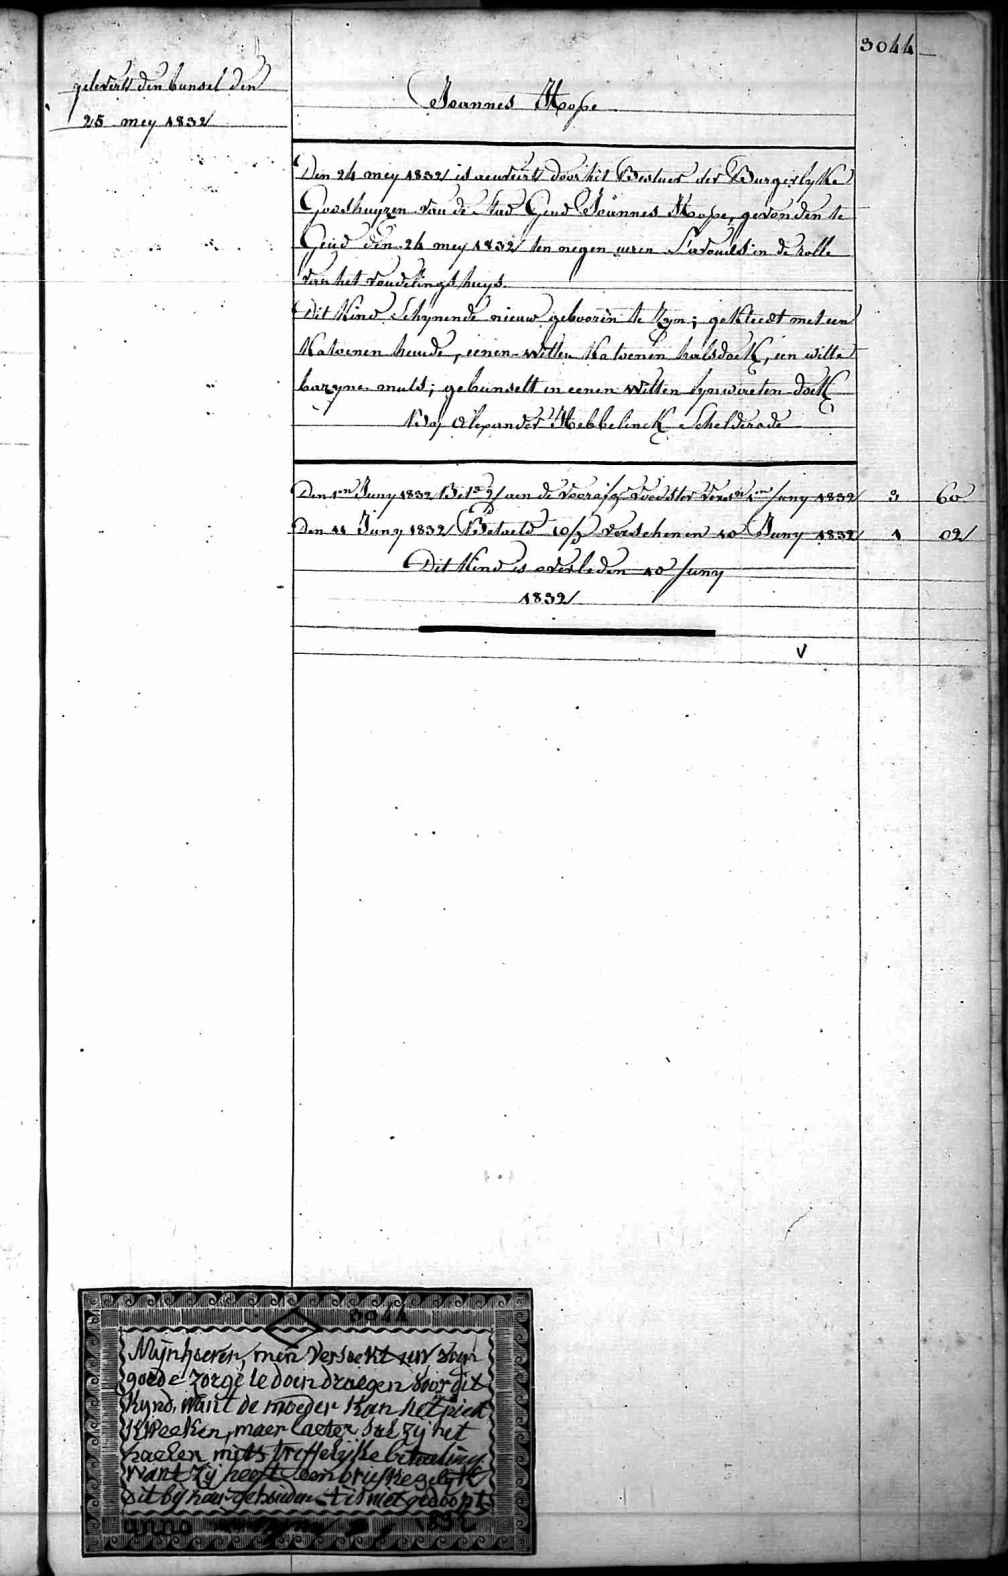 3044
gelevert den bunsel den
25 mey 1832
Joannes Hope
Den 24 mey 1832 is aenveert door het Bestuer der Burgerlyke
Godshuyzen van de Stad Gend Joannes Hope, gevonden te
Gend den 24 mey 1832 ten negen uren s'avonds in de rolle
van het vondelingshuys
Dit Kind Schynende nieuw gebooren te zyn; gekleedt met een
Katoenen hemde, eenen witten Katoenen halsdoek, een witte
bazyne muts; gebunselt in eenen witten lynwaeten doek
Alexander Hebbelinck Schelderode
Den 1en Juny 1832 aen de voorsz voedster 1en Juny 1832 3 60
Den 11 Juny 1832 Betaeld 10/ verschenen 10 Juny 1832 1 02
Dit Kind is overleden 10 Juny
1832
V
3044
Mijnheeren, men versoekt UW van
goede zorge te doen draegen voor dit
Kynd, want de moeder kan het niet
Kweeken, maer laeter sal zij het
haelen mits treffelyke betaeling
want zij heeft een briefke gelyk
dit bij haer gehouden t is niet gedoopt
anno 1832